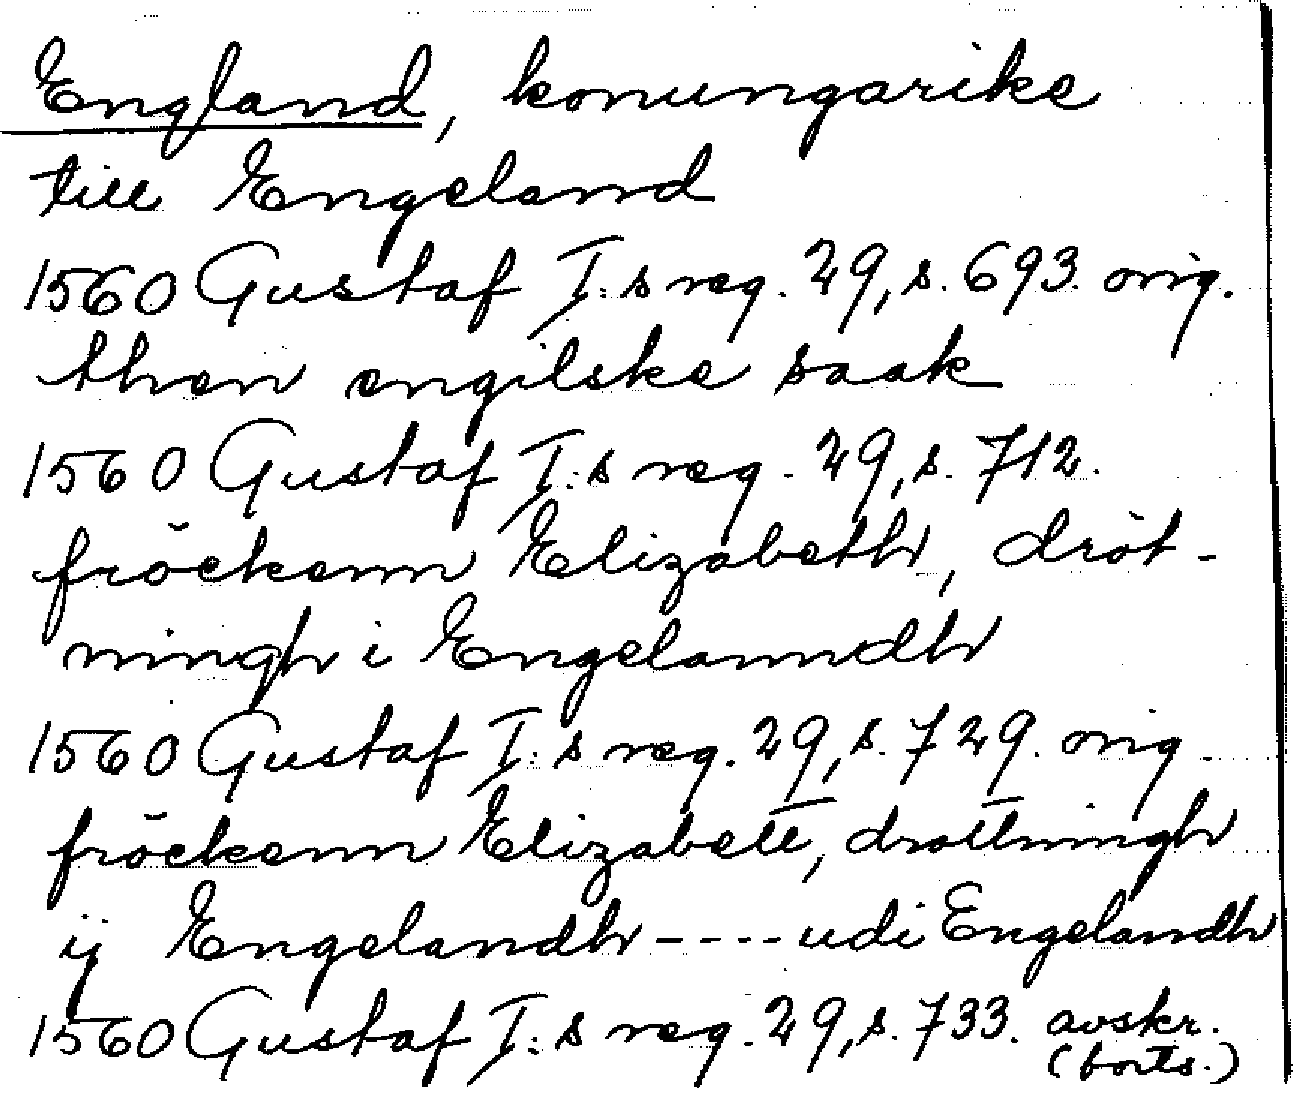 England, konungarike
till Engeland
1560 Gustaf I:s reg. 29, s. 693. orig.
then engilske saak
1560 Gustaf I:s reg. 29, s. 712.
fröckenn Elizabeth, dröt-
ningh i Engelanndh
1560 Gustaf I:s reg. 29, s. 729. orig.
fröckenn Elizabett, drottningh
ij Engelandh ---- udi Engelandh
1560 Gustaf I:s reg. 29, s. 733. avskr.
(forts.)